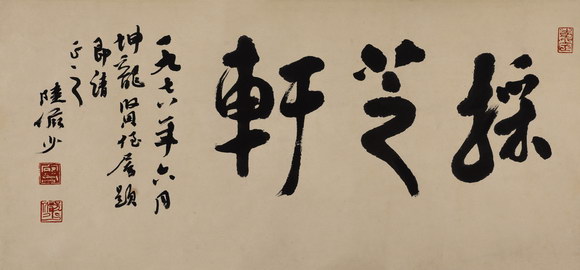 採芝軒
一九七八年六月
坤龍賢侄屬題
即請
正之
陸儼少